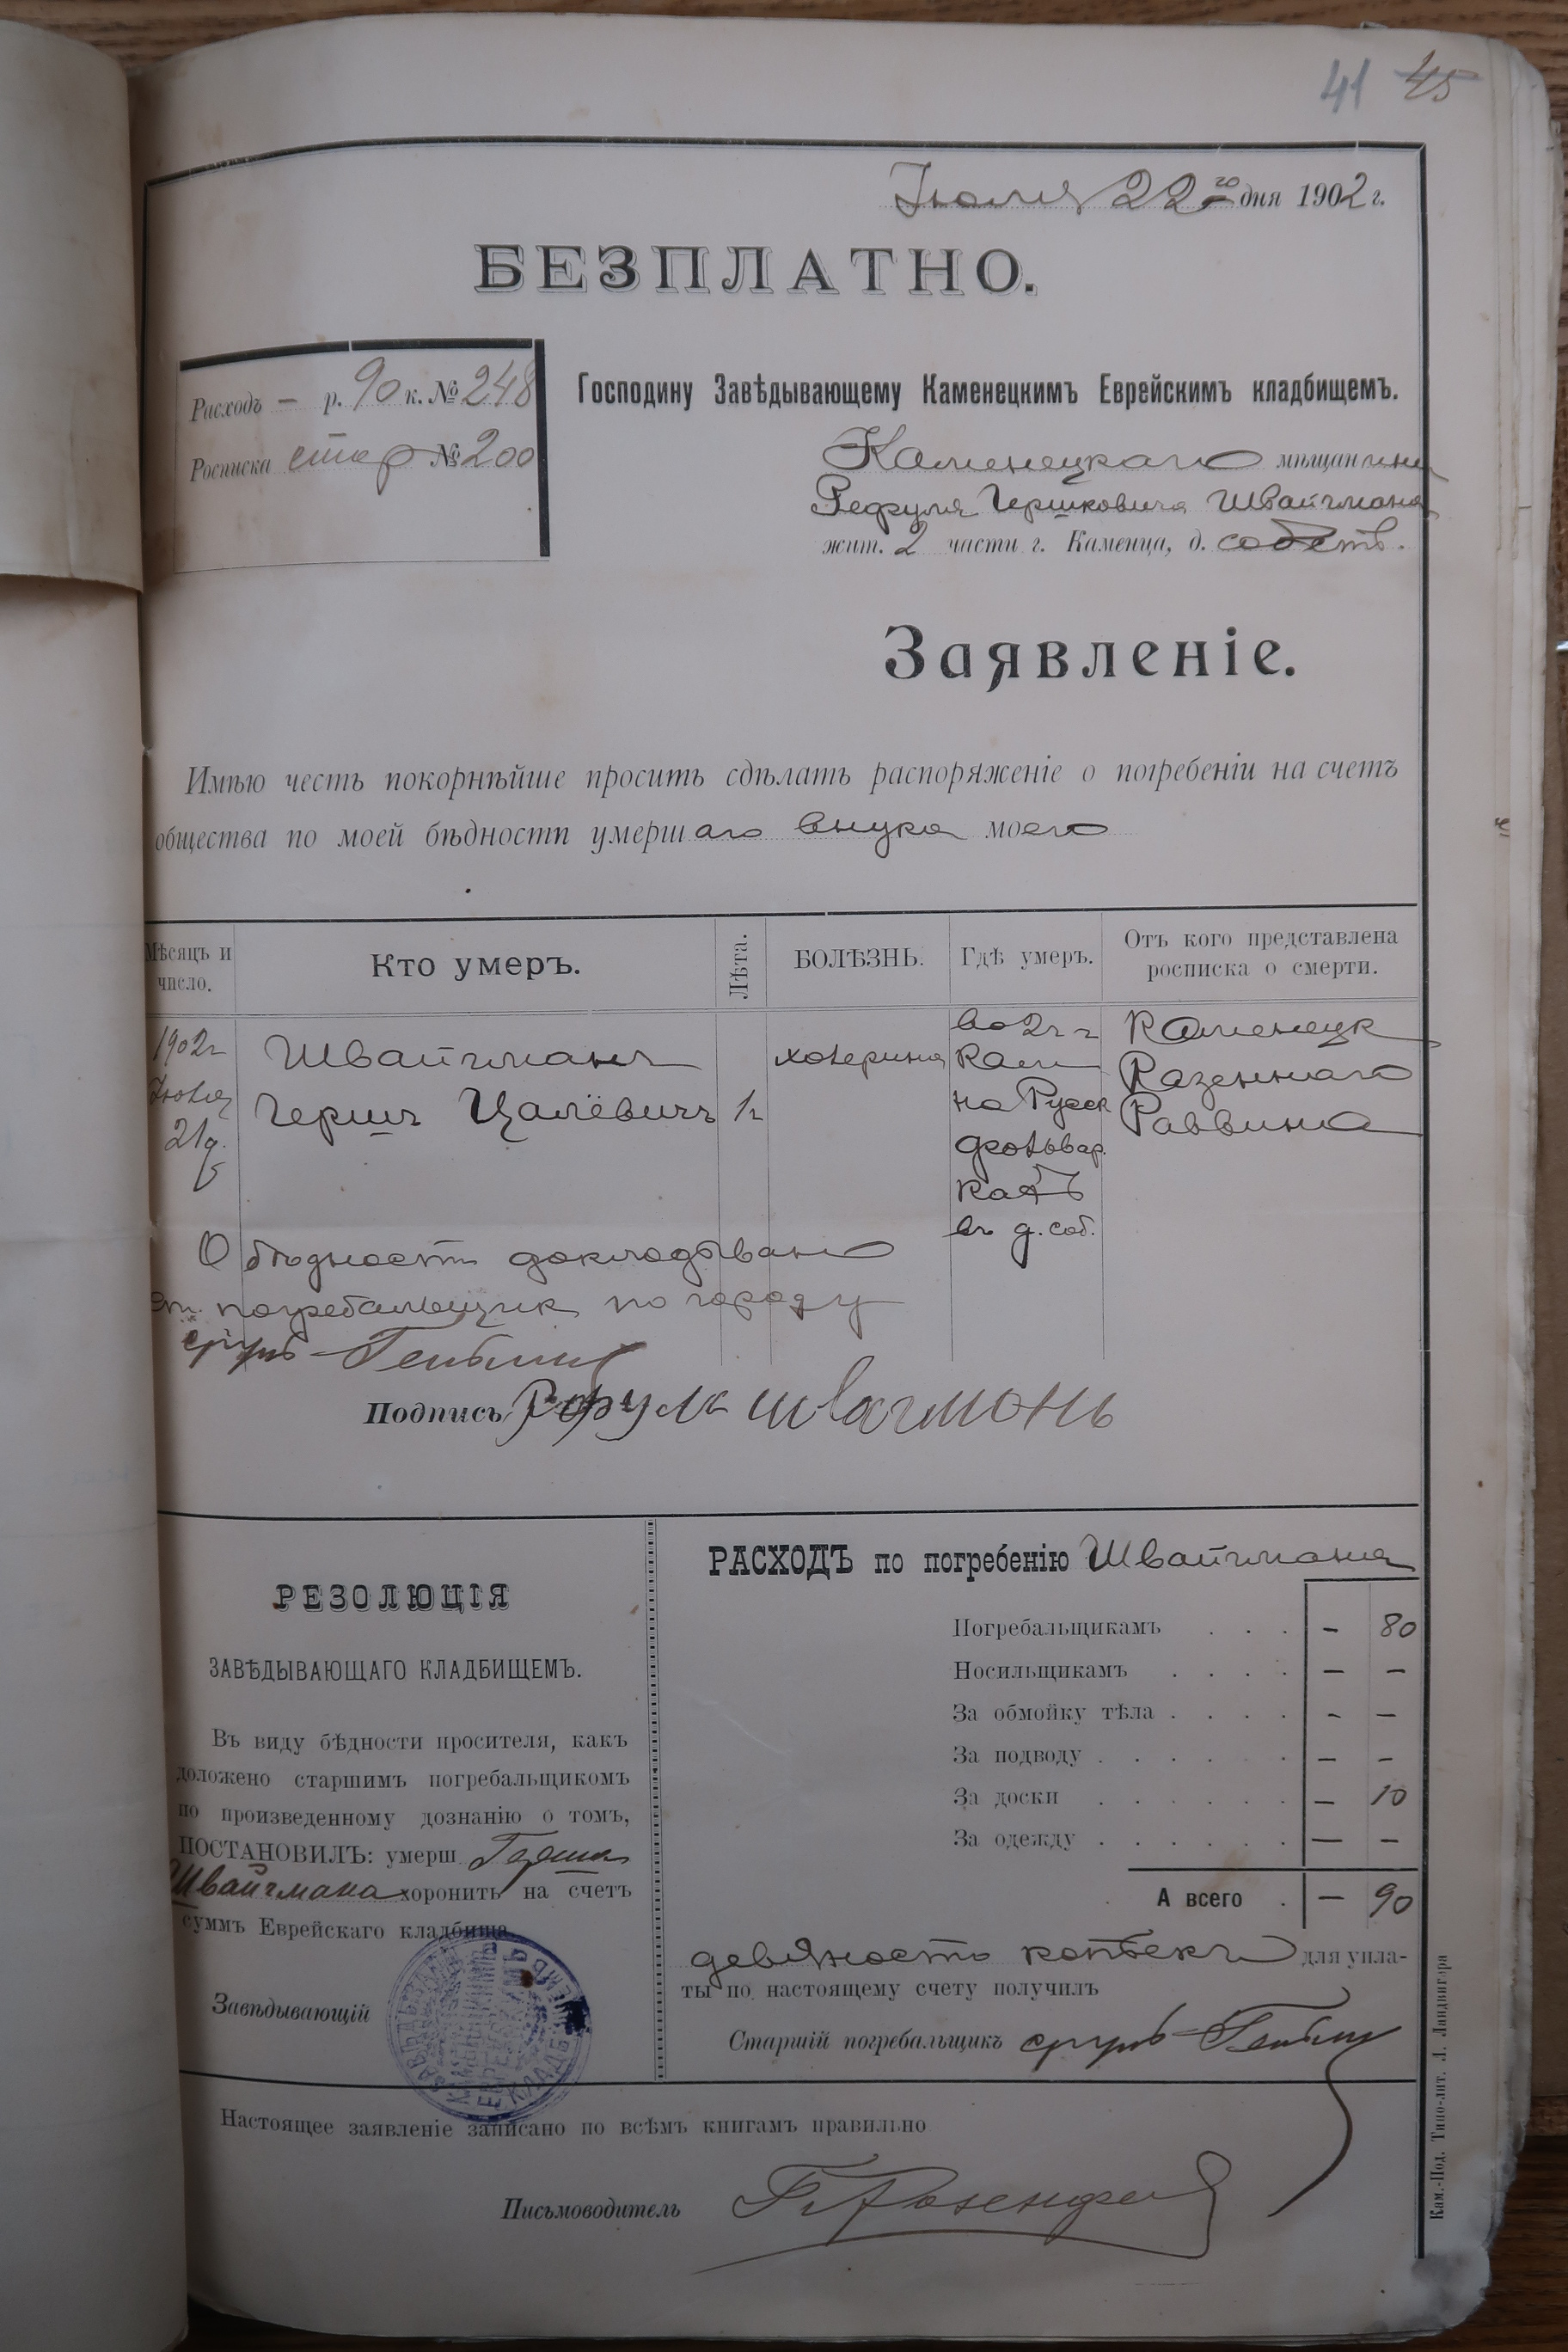 41 45
Июля 22го дня 1902 г.
БЕЗПЛАТНО.
Расходъ — р. 90 к. № 248
Росписка стар № 200
Господину Завѣдывающему Каменецкимъ Еврейскимъ кладбищемъ.
Каменецкаго мѣщанина
Рефуля Гершковича Швайгмана
жит. 2 части г. Каменца, д. собств.
Заявленіе.
Имѣю честь покорнѣйше просить сдѣлать распоряженіе о погребеніи на счетъ
общества по моей бѣдности умершаго внука моего
Мѣсяцъ и число.
Кто умеръ.
Лѣта.
БОЛѢЗНЬ.
Гдѣ умеръ.
Отъ кого представлена росписка о смерти.
1902 г
Июля
21 д.
Швайгманъ
Гершъ Цалёвичъ
1 г
холерина
во 2 ч г
Кам
на Русск
фольвар
кахъ
въ д. соб.
Каменецк
Казеннаго
Раввина
О бѣдности докладывано
ст. погребальщик по городу
Подпись Рефулъ швагмонь
РЕЗОЛЮЦІЯ
ЗАВѢДЫВАЮЩАГО КЛАДБИЩЕМЪ.
Въ виду бѣдности просителя, какъ
доложено старшимъ погребальщикомъ
по произведенному дознанію о томъ,
ПОСТАНОВИЛЪ: умерш Герша
Швайгмана хоронить на счетъ
суммъ Еврейскаго кладбища.
Завѣдывающій
ЗАВѢДЫВАЮЩІЙ КАМЕНЕЦКИМЪ ЕВРЕЙСКИМЪ КЛАДБИЩЕМЪ
РАСХОДЪ по погребенію Швайгмана
Погребальщикамъ . . . — 80
Носильщикамъ . . . . — —
За обмойку тѣла . . . . - —
За подводу . . . . . . — -
За доски . . . . . . — 10
За одежду . . . . . . — —
А всего . — 90
девяносто копѣекъ для упла-
ты по настоящему счету получилъ
Старшій погребальщикъ
Настоящее заявленіе записано по всѣмъ книгамъ правильно
Письмоводитель
Кам.-Под. Типо-лит. Л. Ландвигера